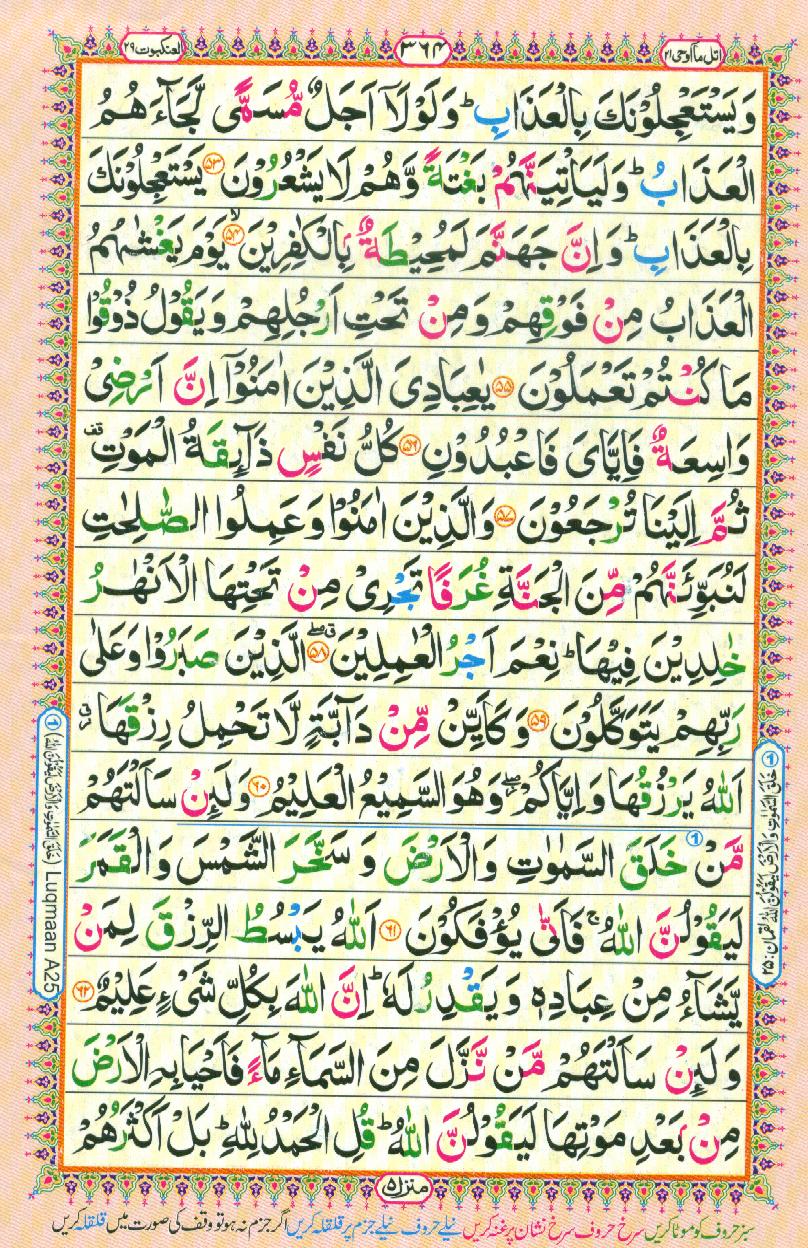 اتل ما اوحی ۲۱
۳۶۴
العنکبوت ۲۹
وَيَسْتَعْجِلُوْنَكَ بِالْعَذَابِ ؕ وَلَوْلَاۤ اَجَلٌ مُّسَمًّى لَّجَآءَهُمُ
الْعَذَابُ ؕ وَلَيَاْتِيَنَّهُمْ بَغْتَةً وَّهُمْ لَا يَشْعُرُوْنَ ﴿۵۳﴾ يَسْتَعْجِلُوْنَكَ
بِالْعَذَابِ ؕ وَاِنَّ جَهَنَّمَ لَمُحِيْطَةٌۢ بِالْكٰفِرِيْنَ ۙ﴿۵۴﴾ يَوْمَ يَغْشٰىهُمُ
الْعَذَابُ مِنْ فَوْقِهِمْ وَمِنْ تَحْتِ اَرْجُلِهِمْ وَيَقُوْلُ ذُوْقُوْا
مَا كُنْتُمْ تَعْمَلُوْنَ ﴿۵۵﴾ يٰعِبَادِيَ الَّذِيْنَ اٰمَنُوْۤا اِنَّ اَرْضِيْ
وَاسِعَةٌ فَاِيَّايَ فَاعْبُدُوْنِ ﴿۵۶﴾ كُلُّ نَفْسٍ ذَآئِقَةُ الْمَوْتِ قف
ثُمَّ اِلَيْنَا تُرْجَعُوْنَ ﴿۵۷﴾ وَالَّذِيْنَ اٰمَنُوْا وَعَمِلُوا الصّٰلِحٰتِ
لَنُبَوِّئَنَّهُمْ مِّنَ الْجَنَّةِ غُرَفًا تَجْرِيْ مِنْ تَحْتِهَا الْاَنْهٰرُ
خٰلِدِيْنَ فِيْهَا ؕ نِعْمَ اَجْرُ الْعٰمِلِيْنَ ﴿۵۸﴾ الَّذِيْنَ صَبَرُوْا وَعَلٰى
رَبِّهِمْ يَتَوَكَّلُوْنَ ﴿۵۹﴾ وَكَاَيِّنْ مِّنْ دَآبَّةٍ لَّا تَحْمِلُ رِزْقَهَا
اَللّٰهُ يَرْزُقُهَا وَاِيَّاكُمْ وَهُوَ السَّمِيْعُ الْعَلِيْمُ ﴿۶۰﴾ وَلَئِنْ سَاَلْتَهُمْ
مَّنْ خَلَقَ السَّمٰوٰتِ وَالْاَرْضَ وَسَخَّرَ الشَّمْسَ وَالْقَمَرَ
لَيَقُوْلُنَّ اللّٰهُ ۚ فَاَنّٰى يُؤْفَكُوْنَ ﴿۶۱﴾ اَللّٰهُ يَبْسُطُ الرِّزْقَ لِمَنْ
يَّشَآءُ مِنْ عِبَادِهٖ وَيَقْدِرُ لَهٗ ؕ اِنَّ اللّٰهَ بِكُلِّ شَيْءٍ عَلِيْمٌ ﴿۶۲﴾
وَلَئِنْ سَاَلْتَهُمْ مَّنْ نَّزَّلَ مِنَ السَّمَآءِ مَآءً فَاَحْيَا بِهِ الْاَرْضَ
مِنْۢ بَعْدِ مَوْتِهَا لَيَقُوْلُنَّ اللّٰهُ ؕ قُلِ الْحَمْدُ لِلّٰهِ ؕ بَلْ اَكْثَرُهُمْ
۱ خَلَقَ السَّمٰوٰتِ وَالْاَرْضَ لَيَقُوْلُنَّ اللّٰهُ لقمان: ۲۵
۱ (خَلَقَ السَّمٰوٰتِ وَالْاَرْضَ لَيَقُوْلُنَّ اللّٰهُ) Luqmaan A25
منزل ۵
سبز حروف کو موٹا کریں سرخ حروف سرخ نشان پر غنہ کریں نیلے حروف نیلے جزم پر قلقلہ کریں اگر جزم نہ ہو تو وقف کی صورت میں قلقلہ کریں